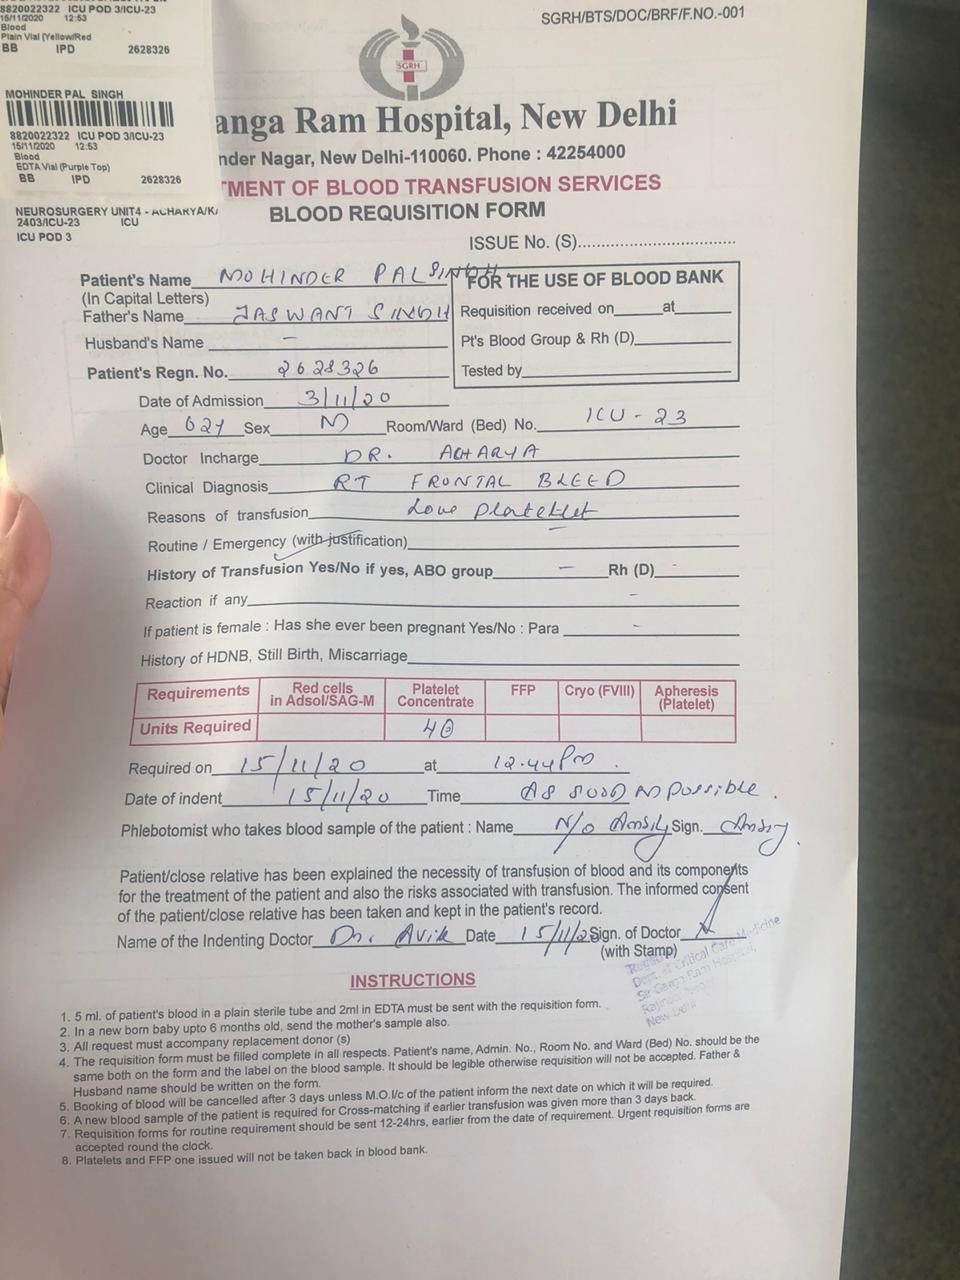 8820022322 ICU POD 3/ICU-23
15/11/2020 12:53
Blood
Plain Vial (Yellow/Red
BB IPD 2628326
MOHINDER PAL SINGH
8820022322 ICU POD 3/ICU-23
15/11/2020 12:53
Blood
EDTA Vial (Purple Top)
BB IPD 2628326
NEUROSURGERY UNIT4 - ACHARYA/K
2403/ICU-23 ICU
ICU POD 3
SGRH/BTS/DOC/BRF/F.NO.-001
SGRH
anga Ram Hospital, New Delhi
nder Nagar, New Delhi-110060. Phone : 42254000
TMENT OF BLOOD TRANSFUSION SERVICES
BLOOD REQUISITION FORM
ISSUE No. (S)
Patient's Name MOHINDER PAL SINGH
(In Capital Letters)
Father's Name JASWANT SINGH
Husband's Name -
Patient's Regn. No. 2628326
FOR THE USE OF BLOOD BANK
Requisition received on at
Pt's Blood Group & Rh (D)
Tested by
Date of Admission 3/11/20
Age 62y Sex M Room/Ward (Bed) No. ICU - 23
Doctor Incharge DR. ACHARYA
Clinical Diagnosis RT FRONTAL BLEED
Reasons of transfusion Low platelet
Routine / Emergency (with justification)
History of Transfusion Yes/No if yes, ABO group - Rh (D) -
Reaction if any -
If patient is female : Has she ever been pregnant Yes/No : Para -
History of HDNB, Still Birth, Miscarriage
Requirements Red cells in Adsol/SAG-M Platelet Concentrate FFP Cryo (FVIII) Apheresis (Platelet)
Units Required
Required on 15/11/20 at 12.44 Pm.
Date of indent 15/11/20 Time As soon as possible.
Phlebotomist who takes blood sample of the patient : Name N/o Sign.
Patient/close relative has been explained the necessity of transfusion of blood and its components
for the treatment of the patient and also the risks associated with transfusion. The informed consent
of the patient/close relative has been taken and kept in the patient's record.
Name of the Indenting Doctor Dr. Avik Date 15/11/20 Sign. of Doctor
(with Stamp)
Dept. of Critical Care Medicine
Sir Ganga Ram Hospital,
New Delhi
INSTRUCTIONS
1. 5 ml. of patient's blood in a plain sterile tube and 2ml in EDTA must be sent with the requisition form.
2. In a new born baby upto 6 months old, send the mother's sample also.
3. All request must accompany replacement donor (s)
4. The requisition form must be filled complete in all respects. Patient's name, Admin. No., Room No. and Ward (Bed) No. should be the
same both on the form and the label on the blood sample. It should be legible otherwise requisition will not be accepted. Father &
Husband name should be written on the form.
5. Booking of blood will be cancelled after 3 days unless M.O.I/c of the patient inform the next date on which it will be required.
6. A new blood sample of the patient is required for Cross-matching if earlier transfusion was given more than 3 days back.
7. Requisition forms for routine requirement should be sent 12-24hrs, earlier from the date of requirement. Urgent requisition forms are
accepted round the clock.
8. Platelets and FFP one issued will not be taken back in blood bank.